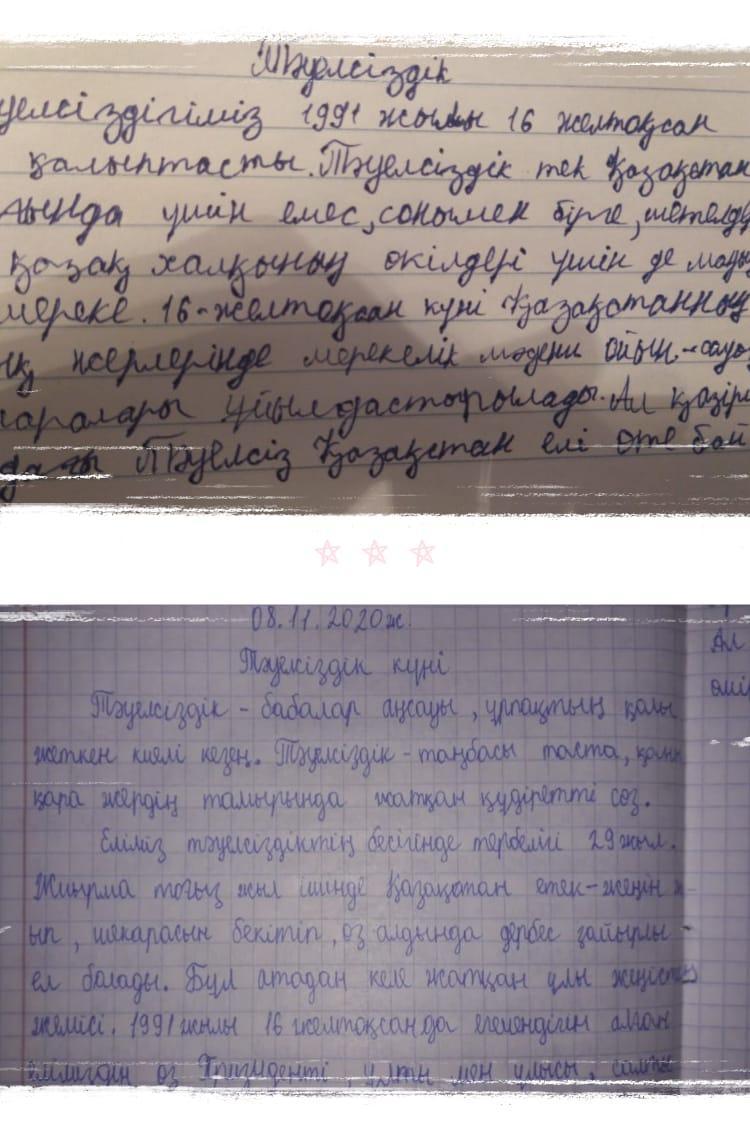 Тәуелсіздік
уелсіздігіміз 1991 жылы 16 желтоқсан
қалыптасты. Тәуелсіздік тек Қазақстан
үшін емес, сонымен бірге, шетелде
қазақ халқының өкілдері үшін де маңы
мереке. 16-желтоқсан күні Қазақстанның
жерлерінде мерекелік мәдени ойын-сауы
аралары ұйымдастырылады. Ал қазіргі
дағы Тәуелсіз Қазақстан елі өте бай
08.11.2020ж.
Тәуелсіздік күні
Тәуелсіздік - бабалар аңсауы, ұрпақтың қолы
жеткен киелі кезең. Тәуелсіздік - таңбасы таста,
қара жердің тамырында жатқан құдіретті сөз.
Еліміз тәуелсіздіктің бесігінде тербелгі 29 жыл.
Жиырма тоғыз жыл ішінде Қазақстан етек-жеңін ж
ып, шекарасын бекітіп, өз алдында дербес зайырлы
ел болады. Бұл атадан келе жатқан ұлы жеңістің
жемісі. 1991 жылы 16 желтоқсанда егемендігін алған
өз Президенті, ұлты мен ұлысы,
Ал